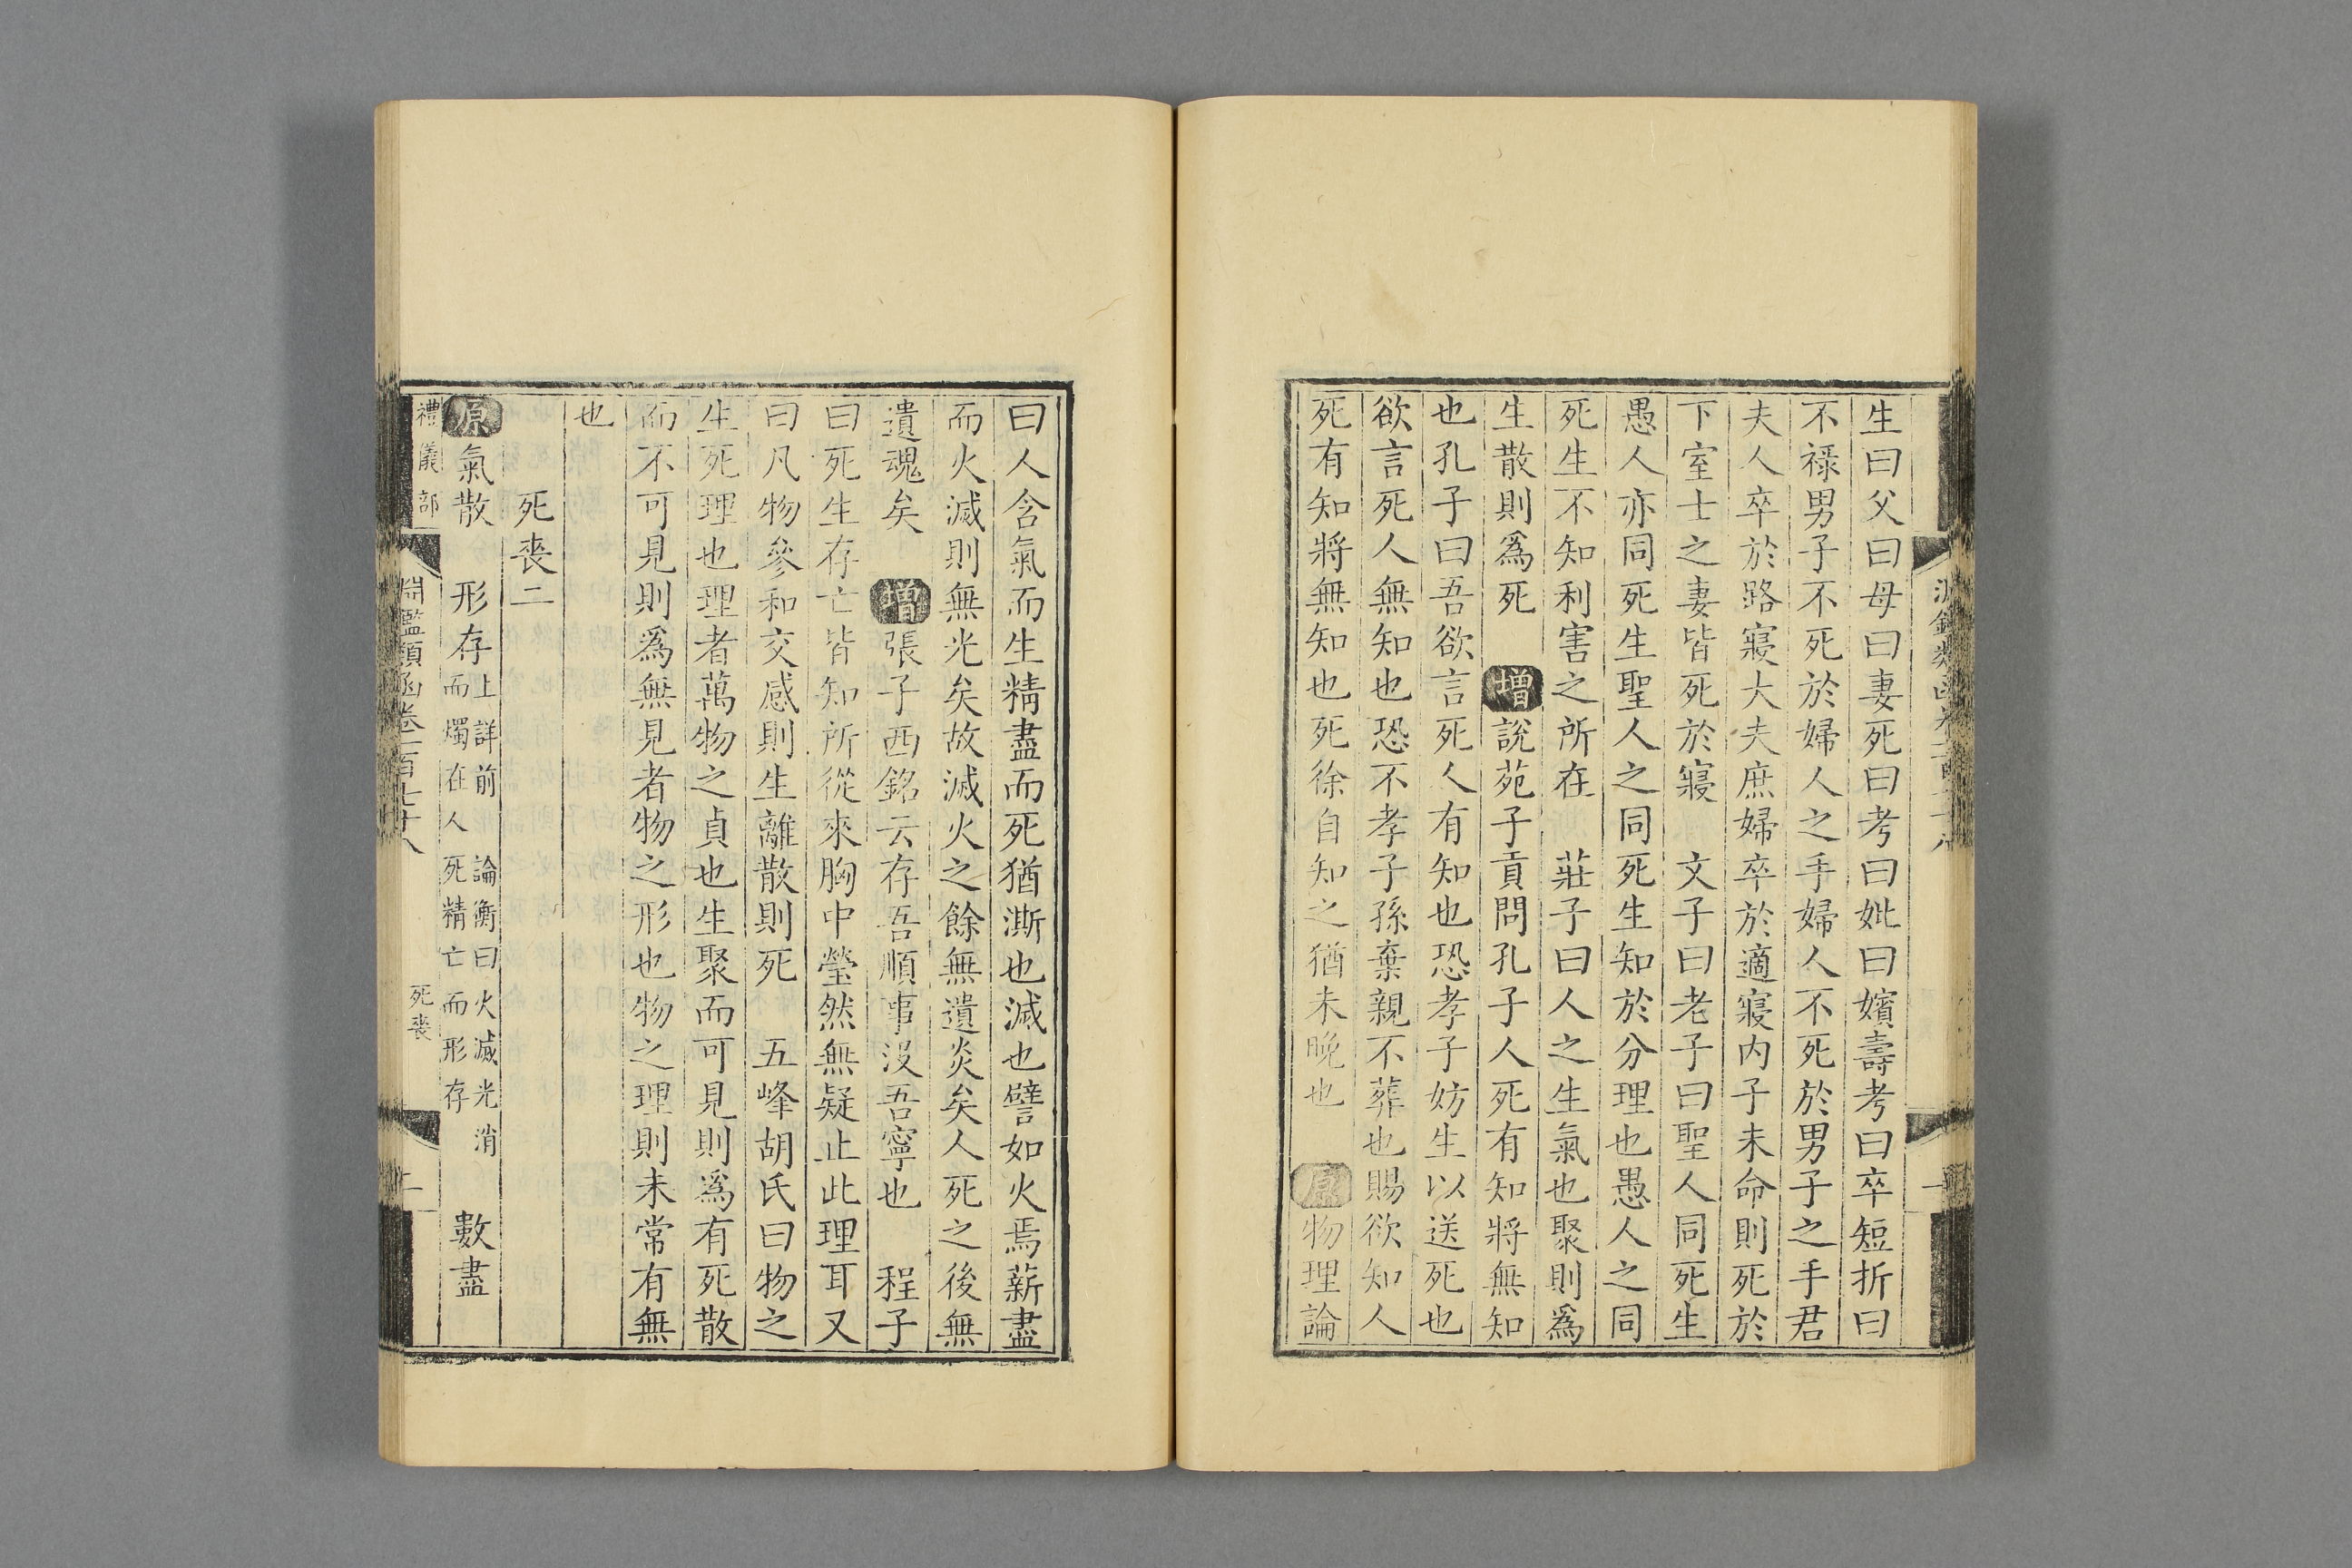 生曰父曰母曰妻死曰考曰妣曰嬪壽考曰卒短折曰
不祿男子不死於婦人之手婦人不死於男子之手君
夫人卒於路寢大夫庶婦卒於適寢内子未命則死於
下室士之妻皆死於寢 文子曰老子曰聖人同死生
愚人亦同死生聖人之同死生知於分理也愚人之同
死生不知利害之所在 莊子曰人之生氣也聚則爲
生散則爲死 增說苑子貢問孔子人死有知將無知
也孔子曰吾欲言死人有知也恐孝子妨生以送死也
欲言死人無知也恐不孝子孫棄親不葬也賜欲知人
死有知將無知也死徐自知之猶未晚也 原物理論
曰人含氣而生精盡而死猶澌也滅也譬如火焉薪盡
而火滅則無光矣故滅火之餘無遺炎矣人死之後無
遺魂矣 增張子西銘云存吾順事沒吾寧也 程子
曰死生存亡皆知所從來胸中瑩然無疑止此理耳又
曰凡物參和交感則生離散則死 五峰胡氏曰物之
生死理也理者萬物之貞也生聚而可見則爲有死散
而不可見則爲無見者物之形也物之理則未常有無
也
死喪二
原氣散 形存上詳前 論衡曰火滅光消而燭在人死精亡而形存 數盡
禮儀部 淵鑑類函卷一百七十八 死喪 二